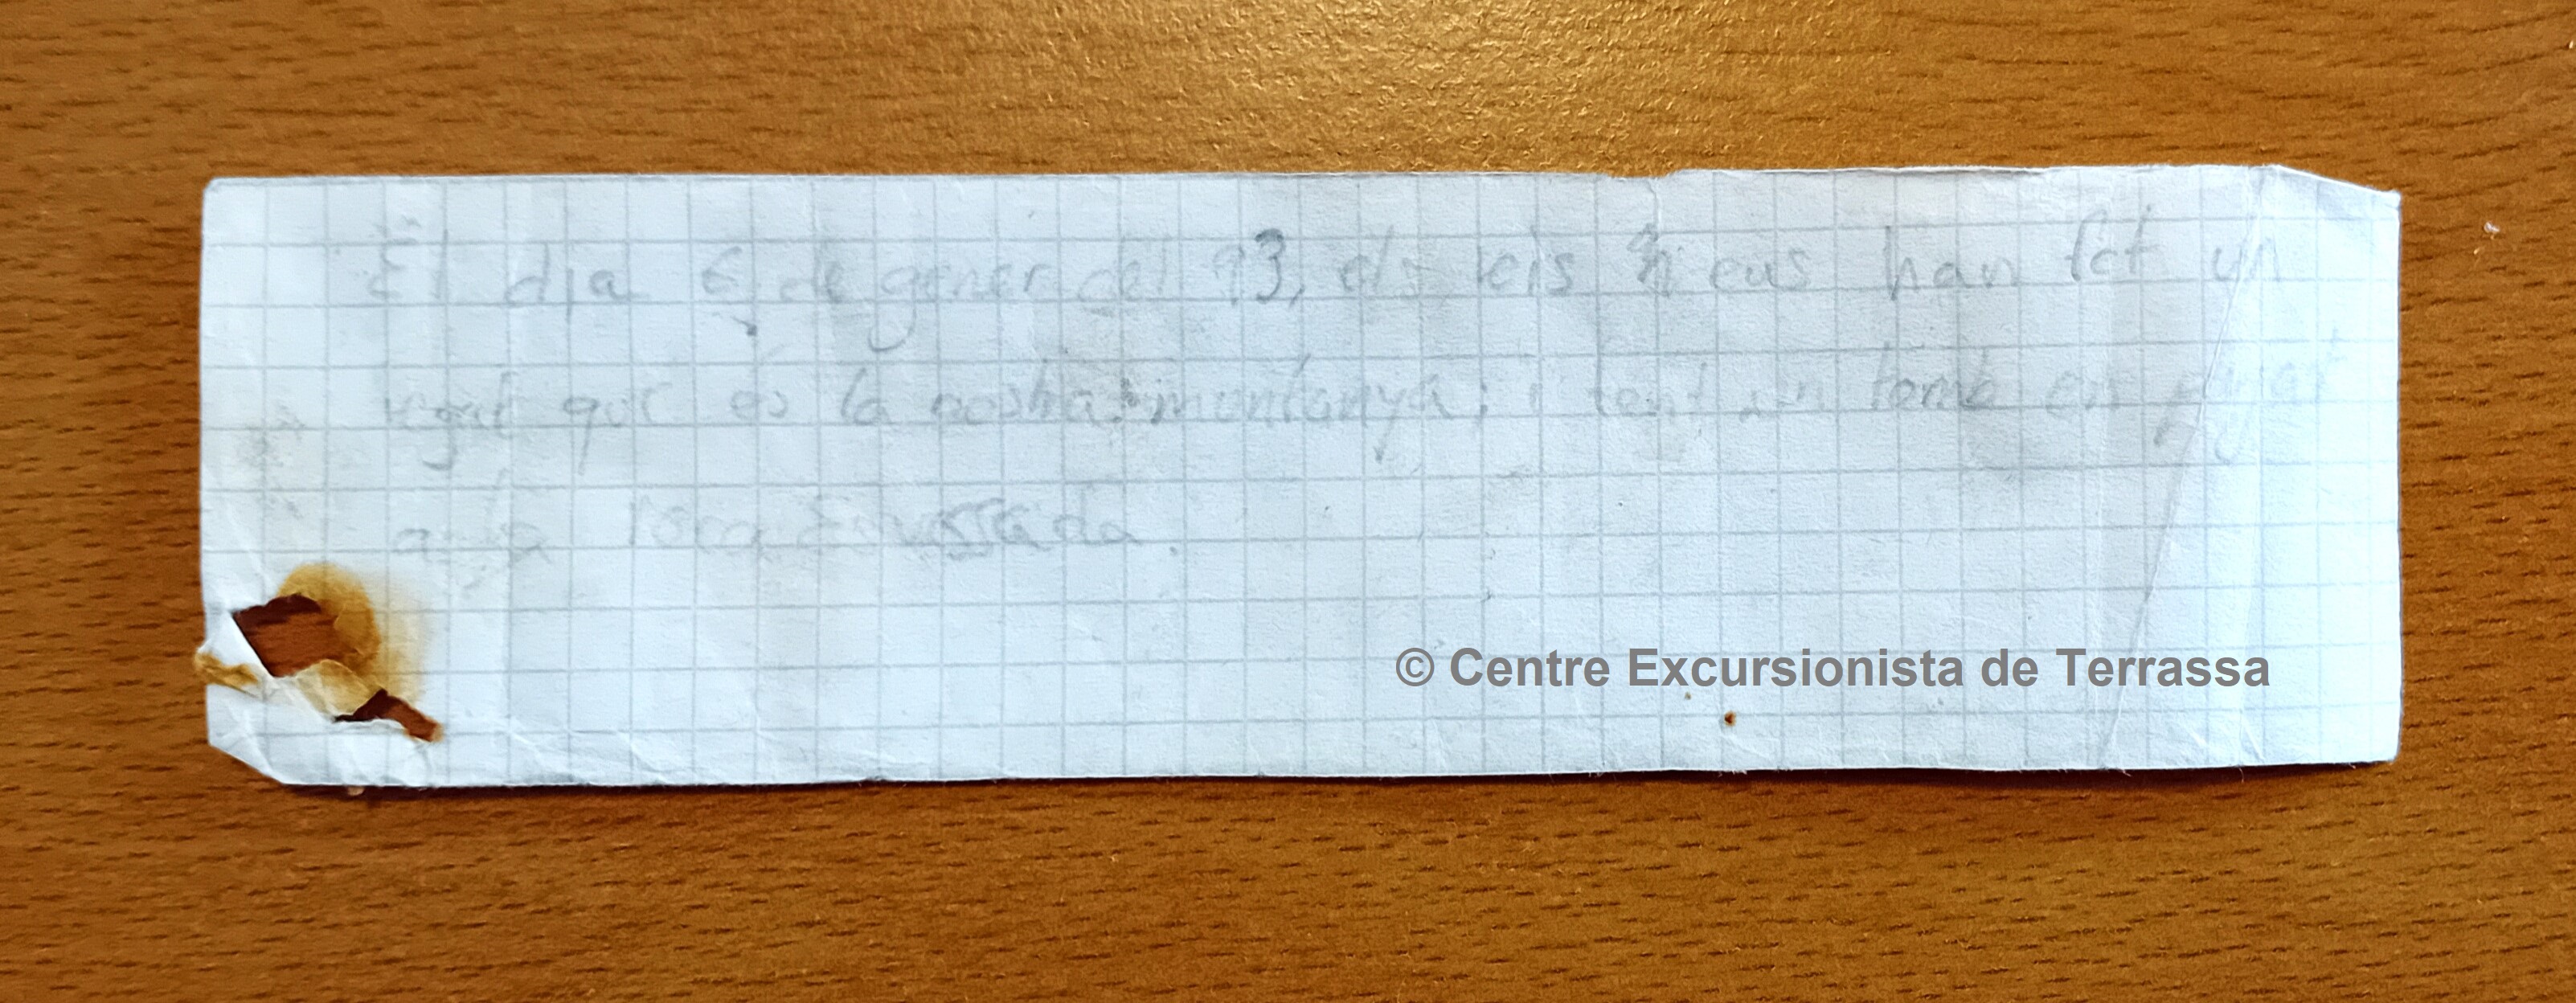 El dia 6 de gener del 93, els reis ens han fet un
regal que és la nostra muntanya; i també en
a la Roca
© Centre Excursionista de Terrassa